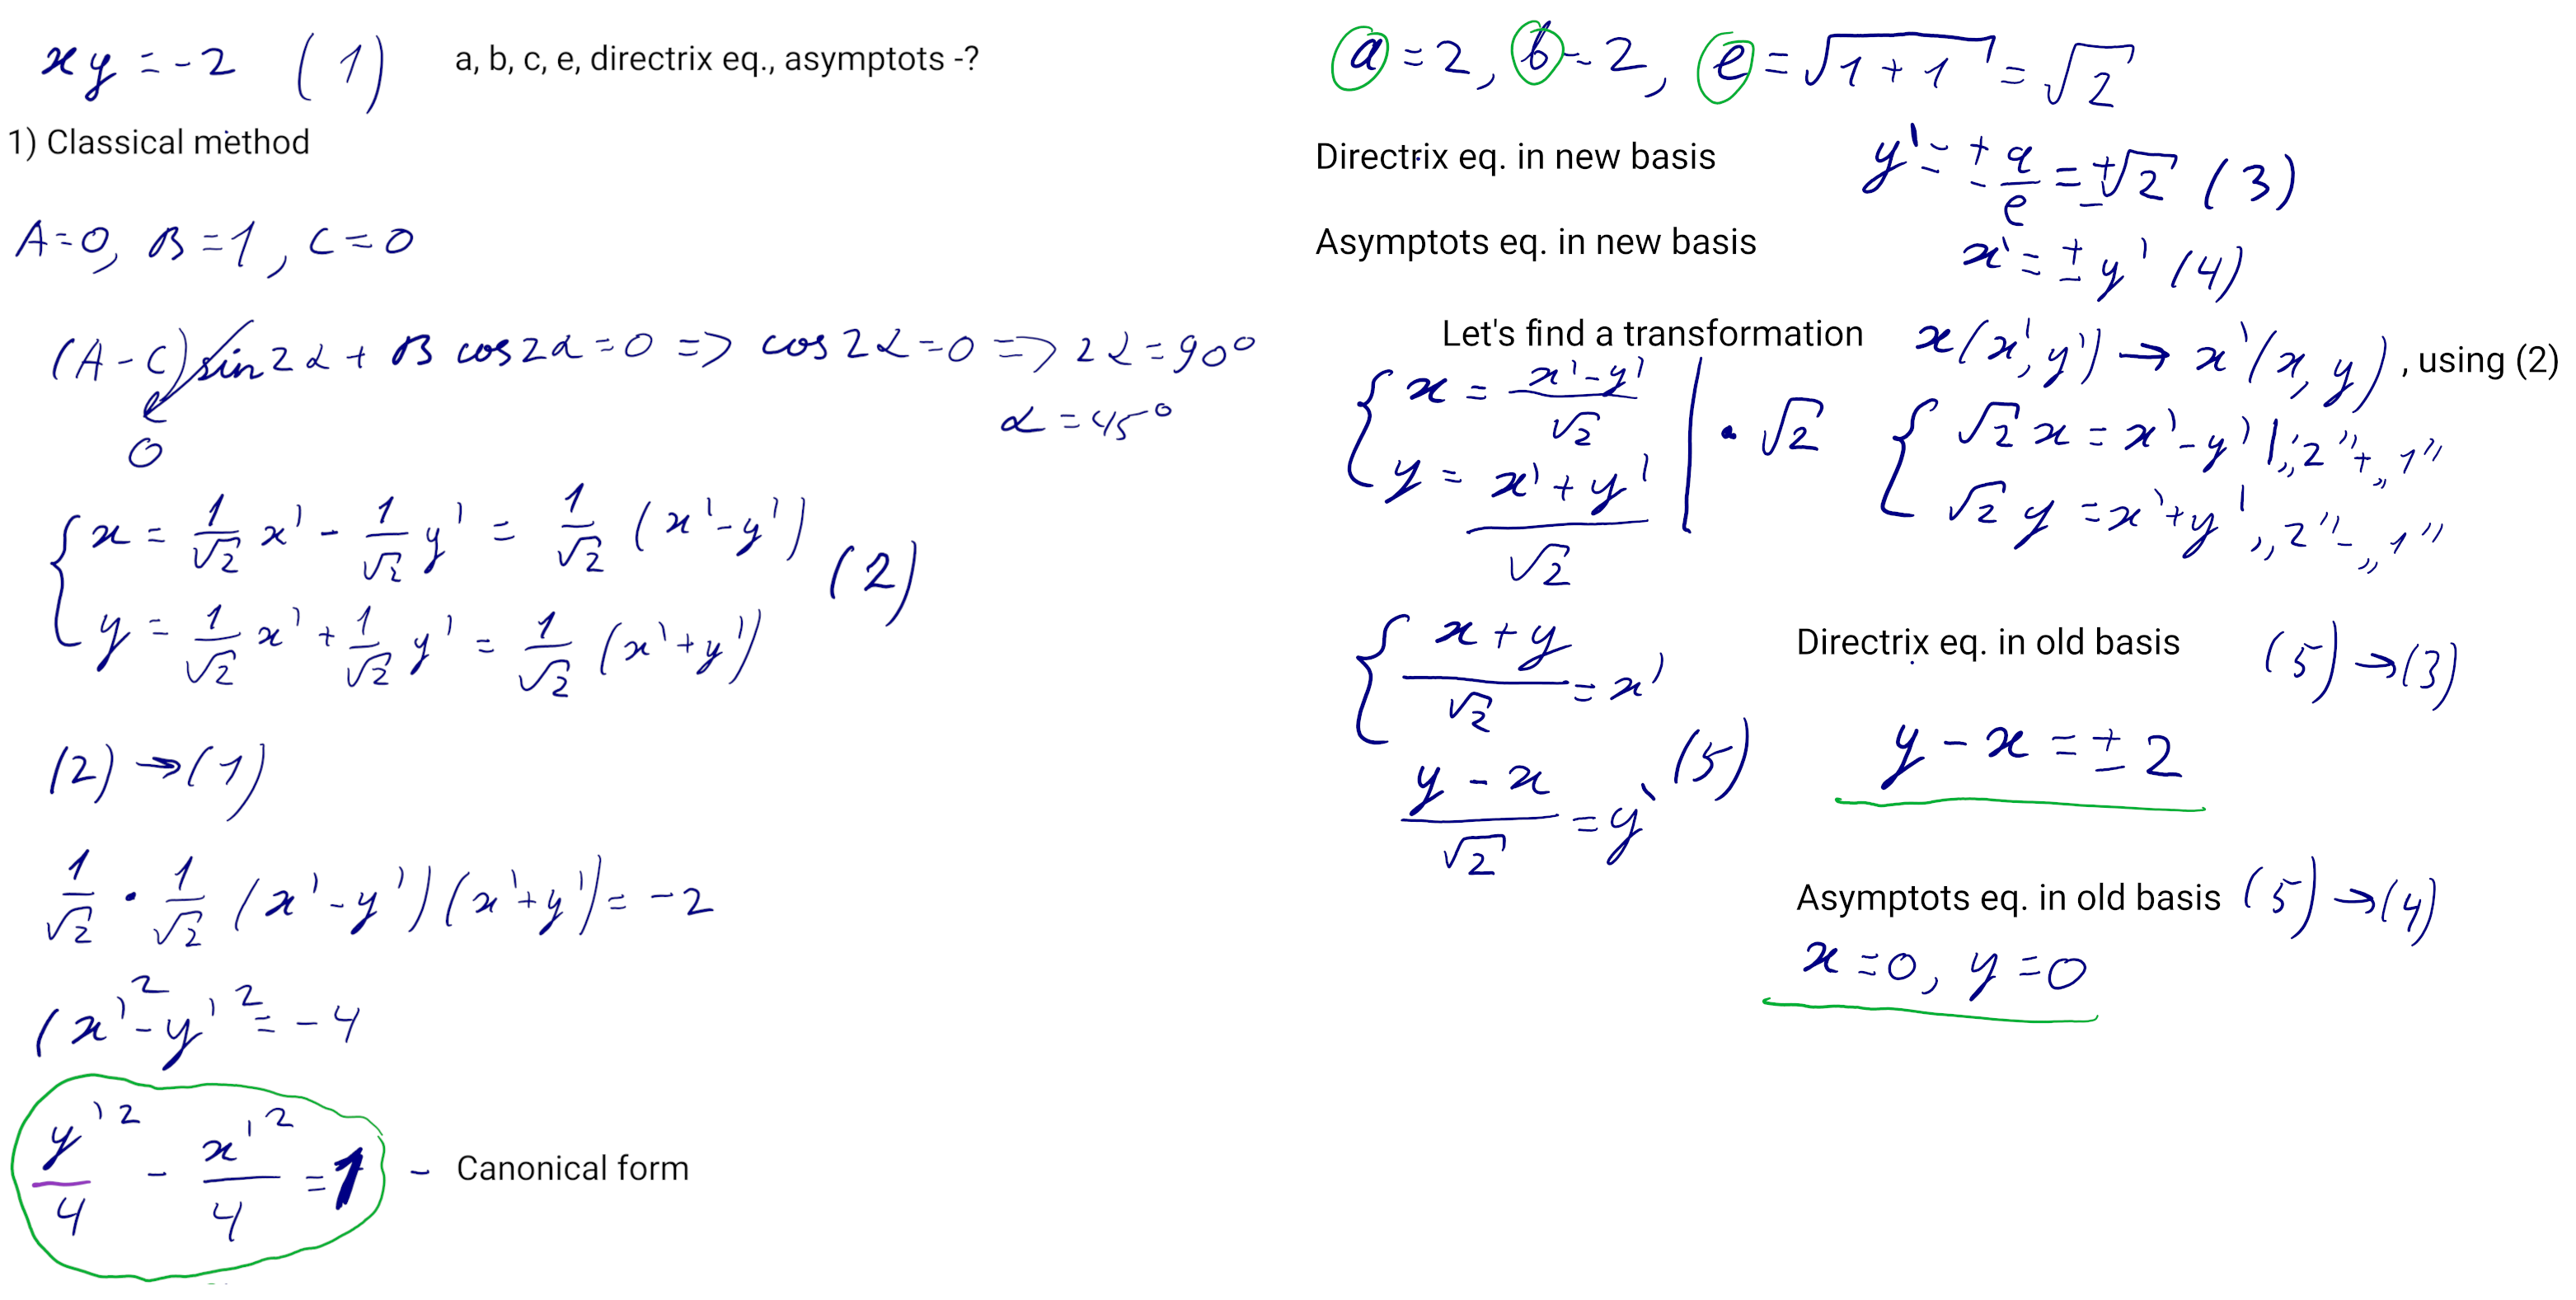 xy = -2 (1) a, b, c, e, directrix eq., asymptots -?
1) Classical method
A=0, B=1, C=0
(A-C) sin2α + B cos2α = 0 => cos2α = 0 => 2α = 90°
0
α = 45°
{ x = 1/√2 x' - 1/√2 y' = 1/√2 (x' - y')
y = 1/√2 x' + 1/√2 y' = 1/√2 (x' + y') (2)
(2) → (1)
1/√2 · 1/√2 (x' - y')(x' + y') = -2
(x'² - y'² = -4
y'²/4 - x'²/4 = 1 - Canonical form
a = 2, b = 2, e = √(1+1) = √2
Directrix eq. in new basis y' = ± a/e = ±√2 (3)
Asymptots eq. in new basis x' = ± y' (4)
Let's find a transformation x(x', y') → x'(x, y), using (2)
{ x = (x' - y')/√2 | · √2 { √2 x = x' - y' | „2" + „1"
y = (x' + y')/√2 √2 y = x' + y' „2" - „1"
{ (x + y)/√2 = x'
(y - x)/√2 = y' (5)
Directrix eq. in old basis (5) → (3)
y - x = ± 2
Asymptots eq. in old basis (5) → (4)
x = 0, y = 0